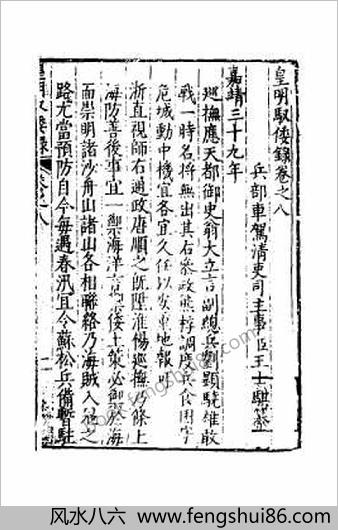 皇明馭倭錄卷之八
兵部車駕清吏司主事臣王士騏纂
嘉靖三十九年
巡撫應天都御史翁大立言副總兵劉顯驍雄敢
戰一時名將無出其右參政熊桴調度兵食用守
危城動中機宜各宜久任以安重地報可
浙直視師右通政唐順之既陞淮楊巡撫乃條上
海防善後事宜一禦海洋言禦倭上策必御於海
面崇明諸沙舟山諸山各相聯絡乃海賊入寇之
路尤當預防自今每遇春汛宜令蘇松兵備暫駐
风水八六 www.fengshui86.com